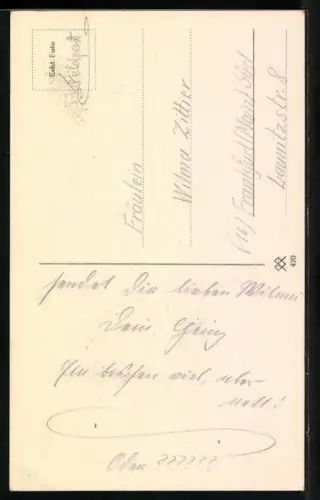 Echt Foto
Feldpost
Fräulein
Wilma Zittier
(16) Frankfurt (Main) Süd
Launitzstr. 8
420
sendet Dir lieben Wilma
Dein
Ein bißchen viel, aber
nett!
Oder ??????